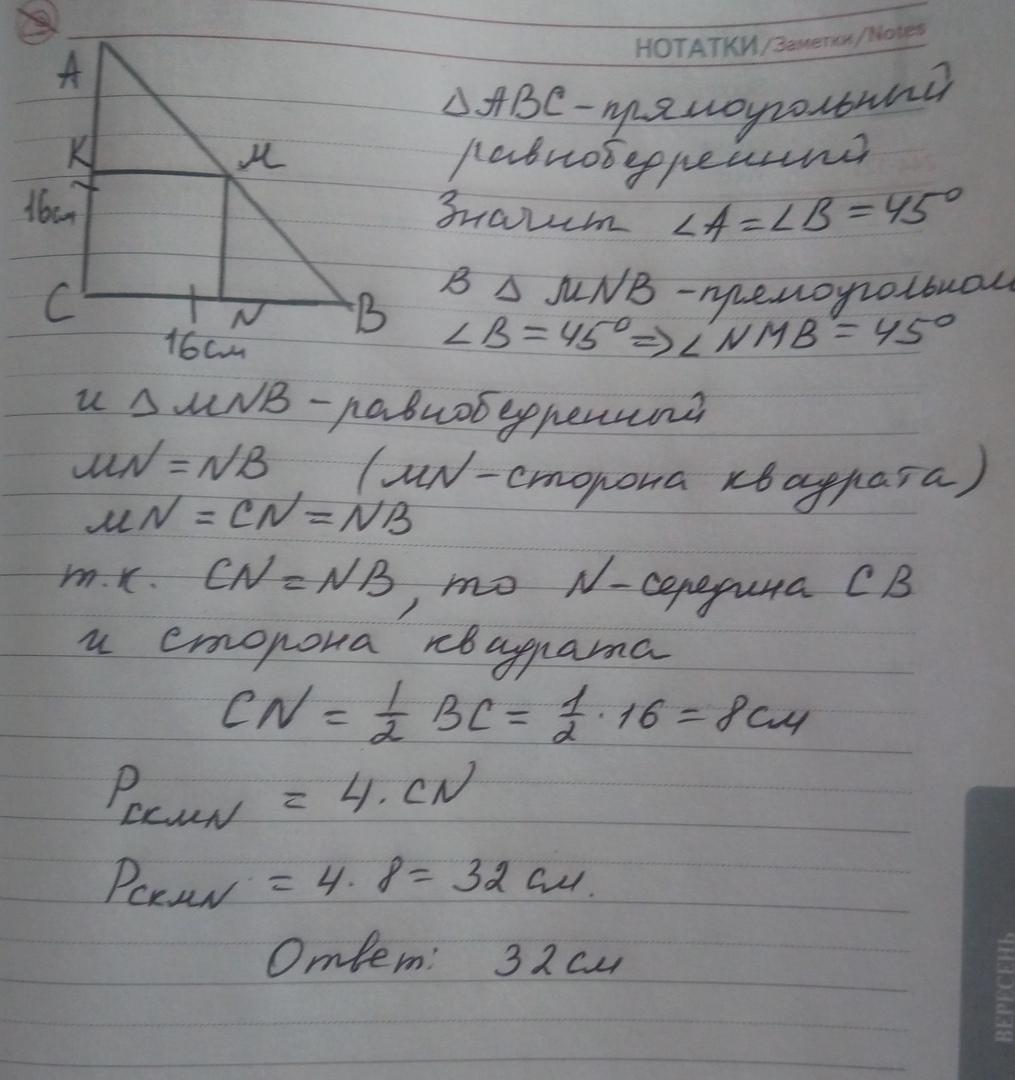 НОТАТКИ/Заметки/Notes
A
K
M
16см
C
N
B
16см
△ABC - прямоугольный
равнобедренный
Значит ∠A = ∠B = 45°
В △ MNB - прямоугольном
∠B = 45° => ∠NMB = 45°
и △ MNB - равнобедренный
MN = NB (MN - сторона квадрата)
MN = CN = NB
т.к. CN = NB, то N - середина CB
и сторона квадрата
CN = 1/2 BC = 1/2 · 16 = 8 см
P_CKMN = 4 · CN
P_CKMN = 4 · 8 = 32 см.
Ответ: 32 см
ВЕРЕСЕНЬ